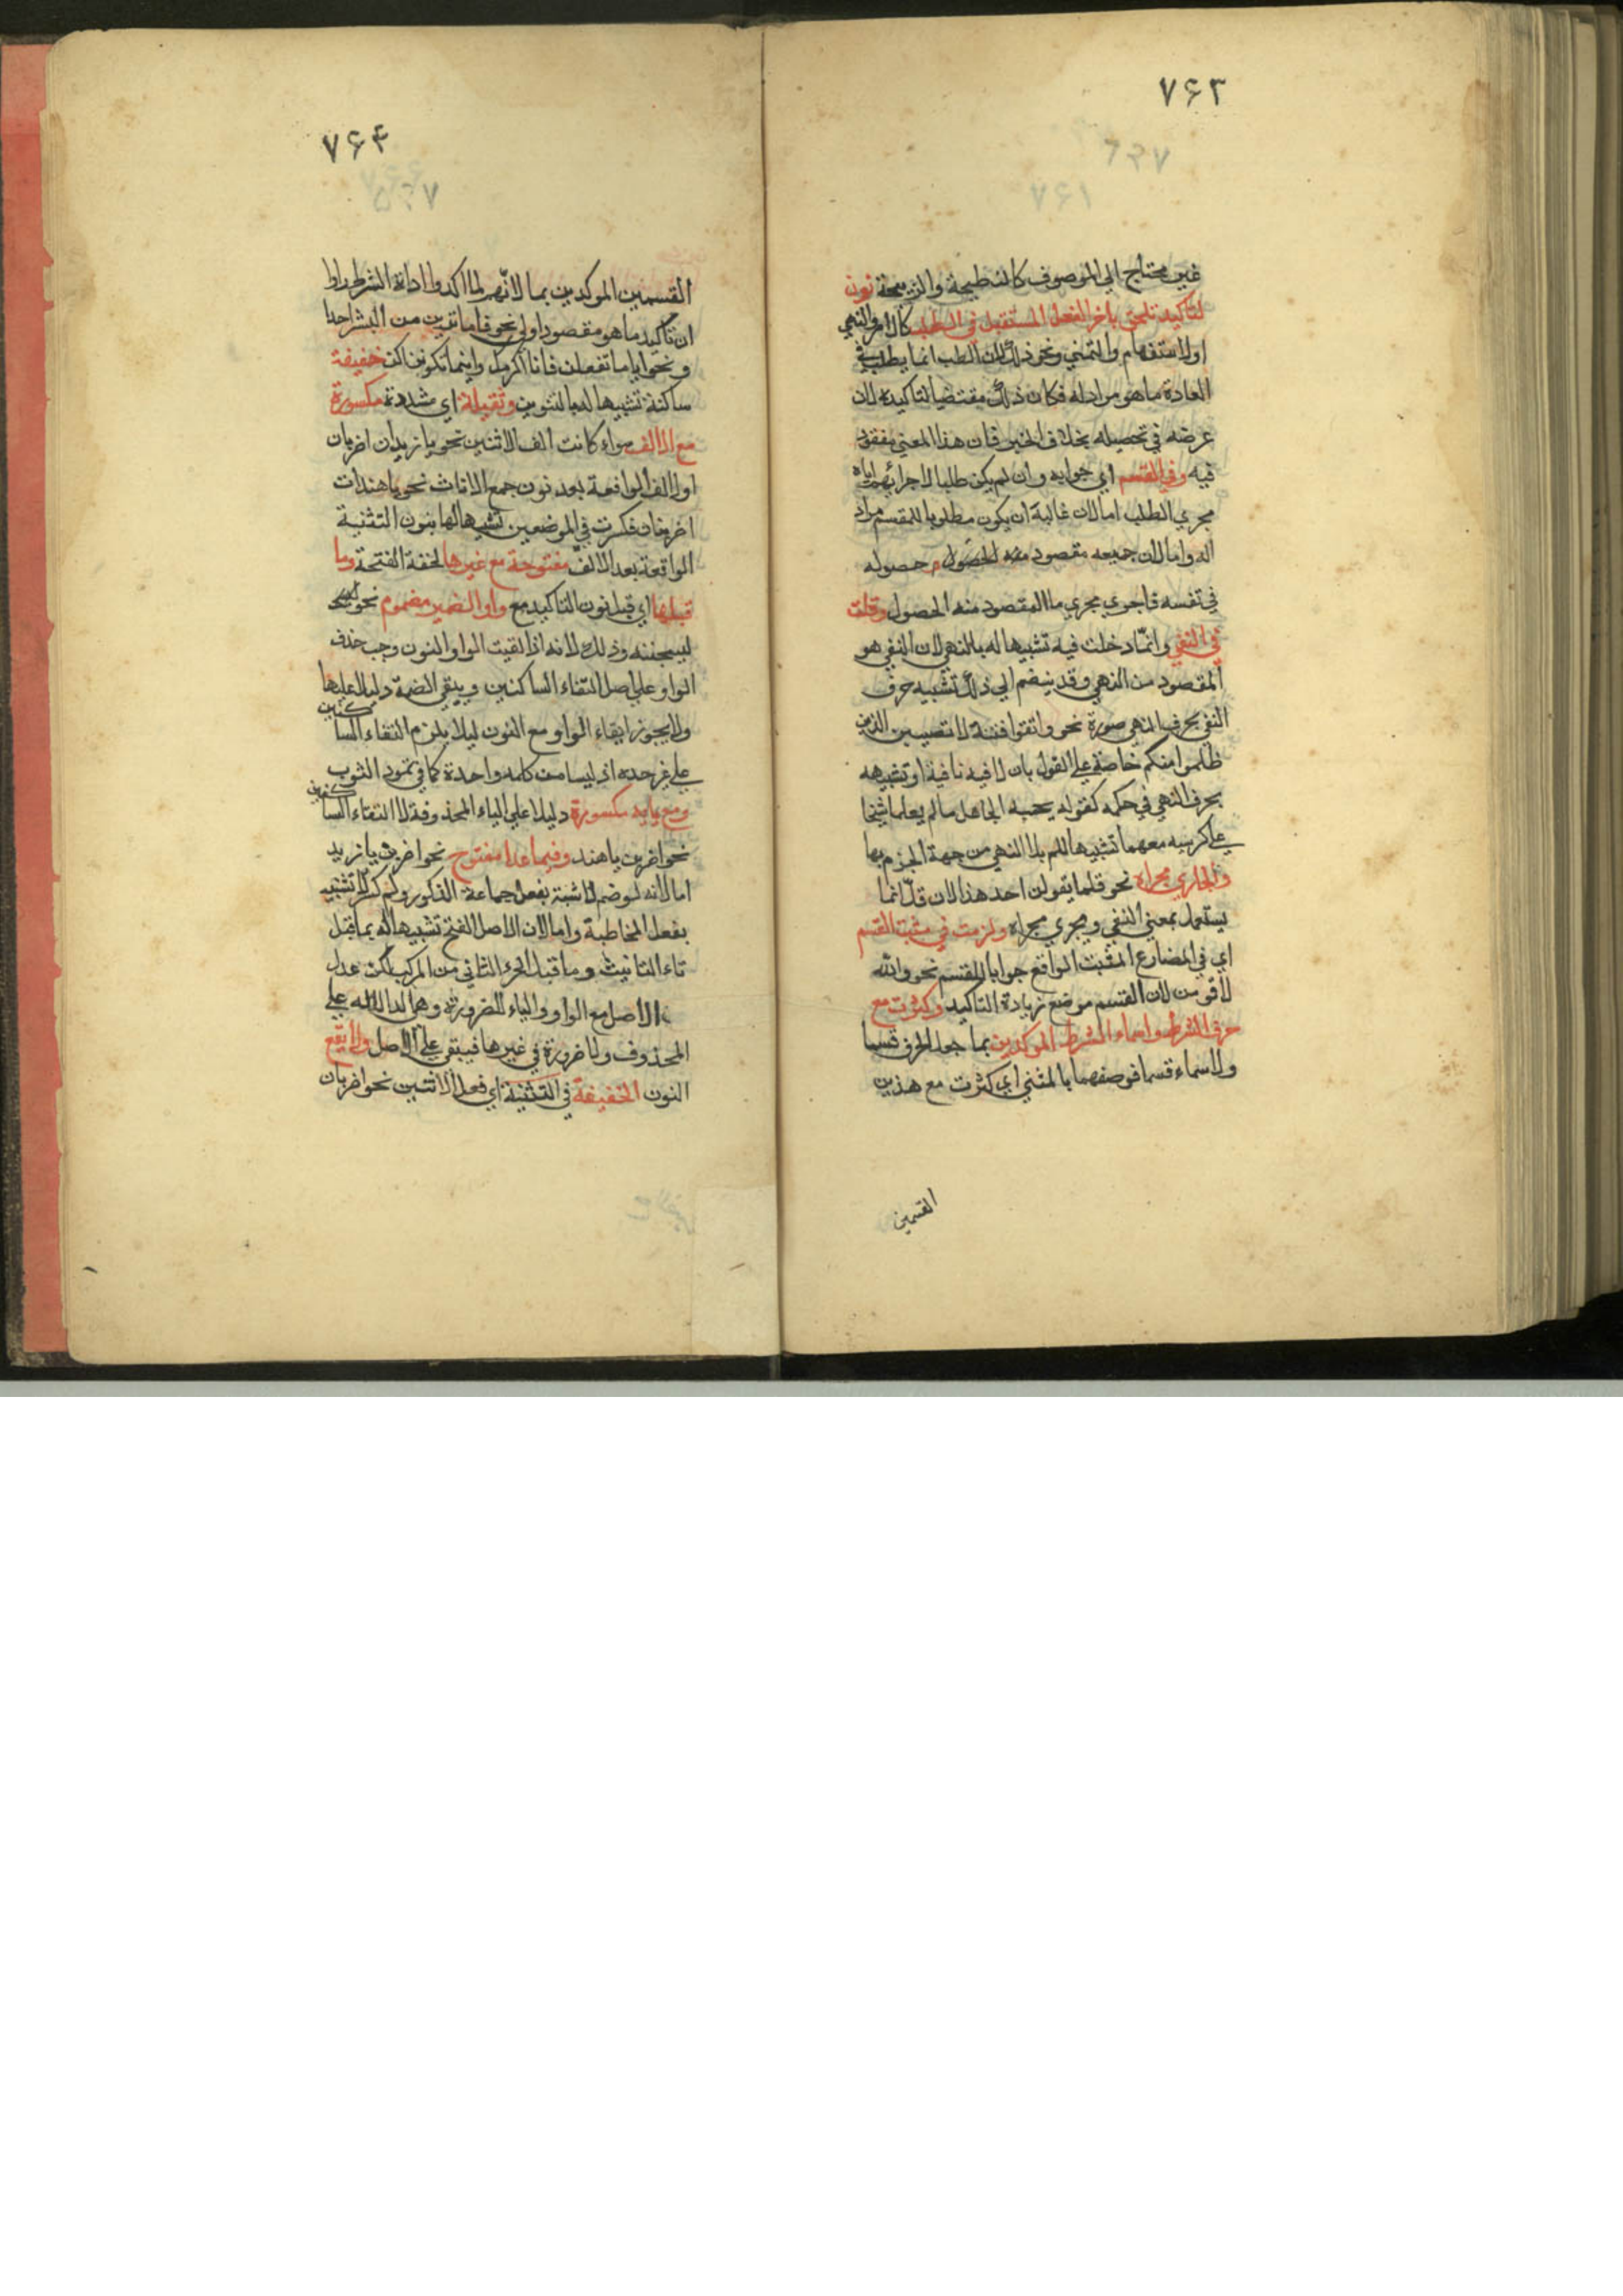 ۷۶۳
غير محتاج الي الموصوف كالنطيحة والذبيحة نون
لتاكيد تلحق باخر الفعل المستقبل في الطلب كالامر والنهي
اولاستفهام والتمني ونحو ذلك لان الطلب انما يطلب في
العادة ما هو مراد له فكان ذلك مقتضيا لتاكيده لان
غرضه في تحصيله بخلاف الخبر فان هذا المعني مفقود
فيه وفي القسم اي جوابه وان لم يكن طلبا لاجرائهم اياه
مجري الطلب امالان غالبة ان يكون مطلوبا للمقسم مراد
اله وامالان جميعه مقصود منه الحصول حصوله
في نفسه فاجري مجري ما المقصود منه الحصول وقلت
في النفي وانّما دخلت فيه تشبيها له بالنهي لان النفي هو
المقصود من النهي وقد ينضم الي ذلك تشبيه حرف
النفي بحرف النهي صورة نحو واتقوا فتنة لا تصيبن الذين
ظلموا منكم خاصة علي القول بان لا فيه نافية او تشبيهه
بحرف النهي في حكمه كقوله يحسبه الجاهل مالم يعلما شيخا
علي كرسيه معهما تشبيها للم بلا النهي من جهة الجزم بها
والجاري مجراه نحو قلما يقولن احد هذا لان قلّ انما
يستعمل بمعني النفي ويجري مجراه ولزمت في مثبت القسم
اي في المضارع المثبت الواقع جوابا للقسم نحو والله
لاقومن لان القسم موضع زيادة التاكيد وكثرت مع
حرف الشرط واسماء الشرط الموكدين بما جعل الحرف قسما
ولاسماء قسما فوصفهما بالمثني اي كثرت مع هذين
القسمين
۷۶۴
القسمين الموكدين بما لانّهم لما اكدوا اداة الشرط راوا
ان تاكيد ما هو مقصود اولي نحو فاما ترين من البشر احدا
ونحو اياما تفعلن فانا اكرمك واينما تكونن اكن خفيفة
ساكنة تشبيها له بالتنوين وثقيلة اي مشددة مكسورة
مع الالف سواء كانت الف الاثنين نحو يا زيدان اضربان
اوالالف الواقعة بعد نون جمع الاناث نحو يا هندات
اضربنان فكسرت في الموضعين تشبيها لها بنون التثنية
الواقعة بعد الالف مفتوحة مع غيرها لخفة الفتحة وما
قبلها اي قبل نون التاكيد مع واو الضمير مضموم نحو
ليسجننه وذلك لانه اذا لقيت الواو النون وجب حذف
الواو علي اصل التقاء الساكنين ويبقي الضمة دليلا عليها
ولا يجوز ابقاء الواو مع النون ليلا يلزم التقاء الساكنين
علي غير حده اذ ليسا من كلمة واحدة كما في تمود الثوب
ومع يايه مكسورة دليلا علي الياء المحذوفة لا التقاء الساكنين
نحو اضربن يا هند وفيما عدا مفتوح نحو اضربن يا زيد
امالانه لو ضم لاشبه بفعل جماعة الذكور ولو كسر لاشبه
بفعل المخاطبة وامالان الاصل الفتح تشبيها له بما قبل
تاء التانيث وما قبل الجزء الثاني من المركب لكن عدل
الاصل مع الواو والياء للضرورة وهي الدلالة علي
المحذوف ولا ضرورة في غيرها فيبقي علي الاصل ولا يقع
النون الخفيفة في التثنية اي فعل الاثنين نحو اضربان